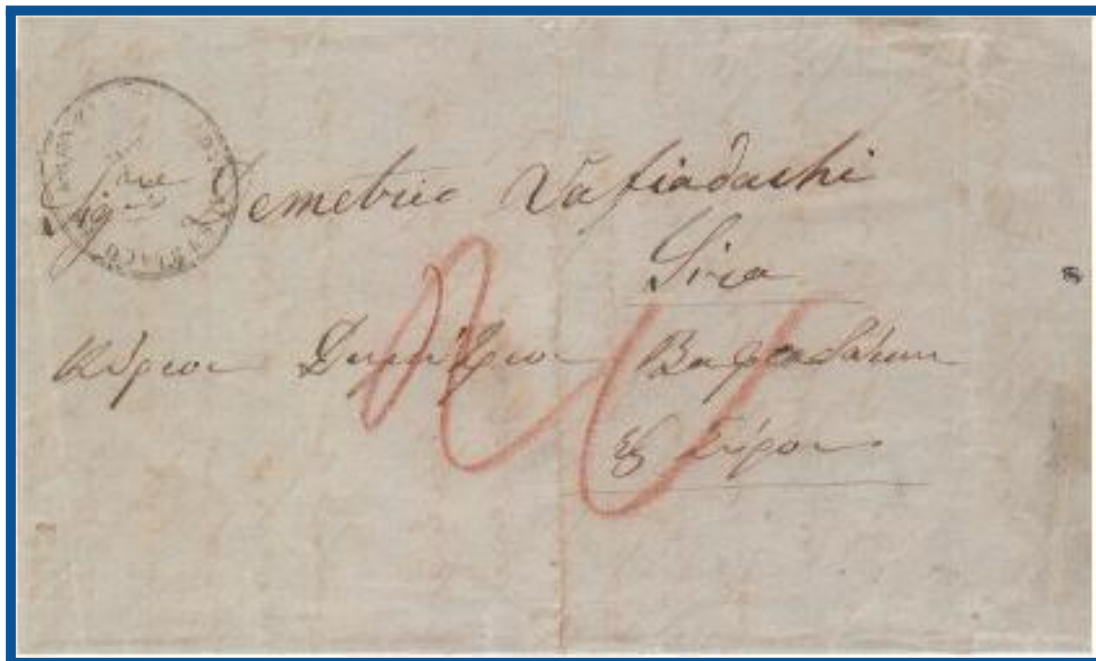 Sig.re Demetrio Vafiadachi
Sira
Κύριον Δημήτριον Βαφιαδάκην
Σύρον